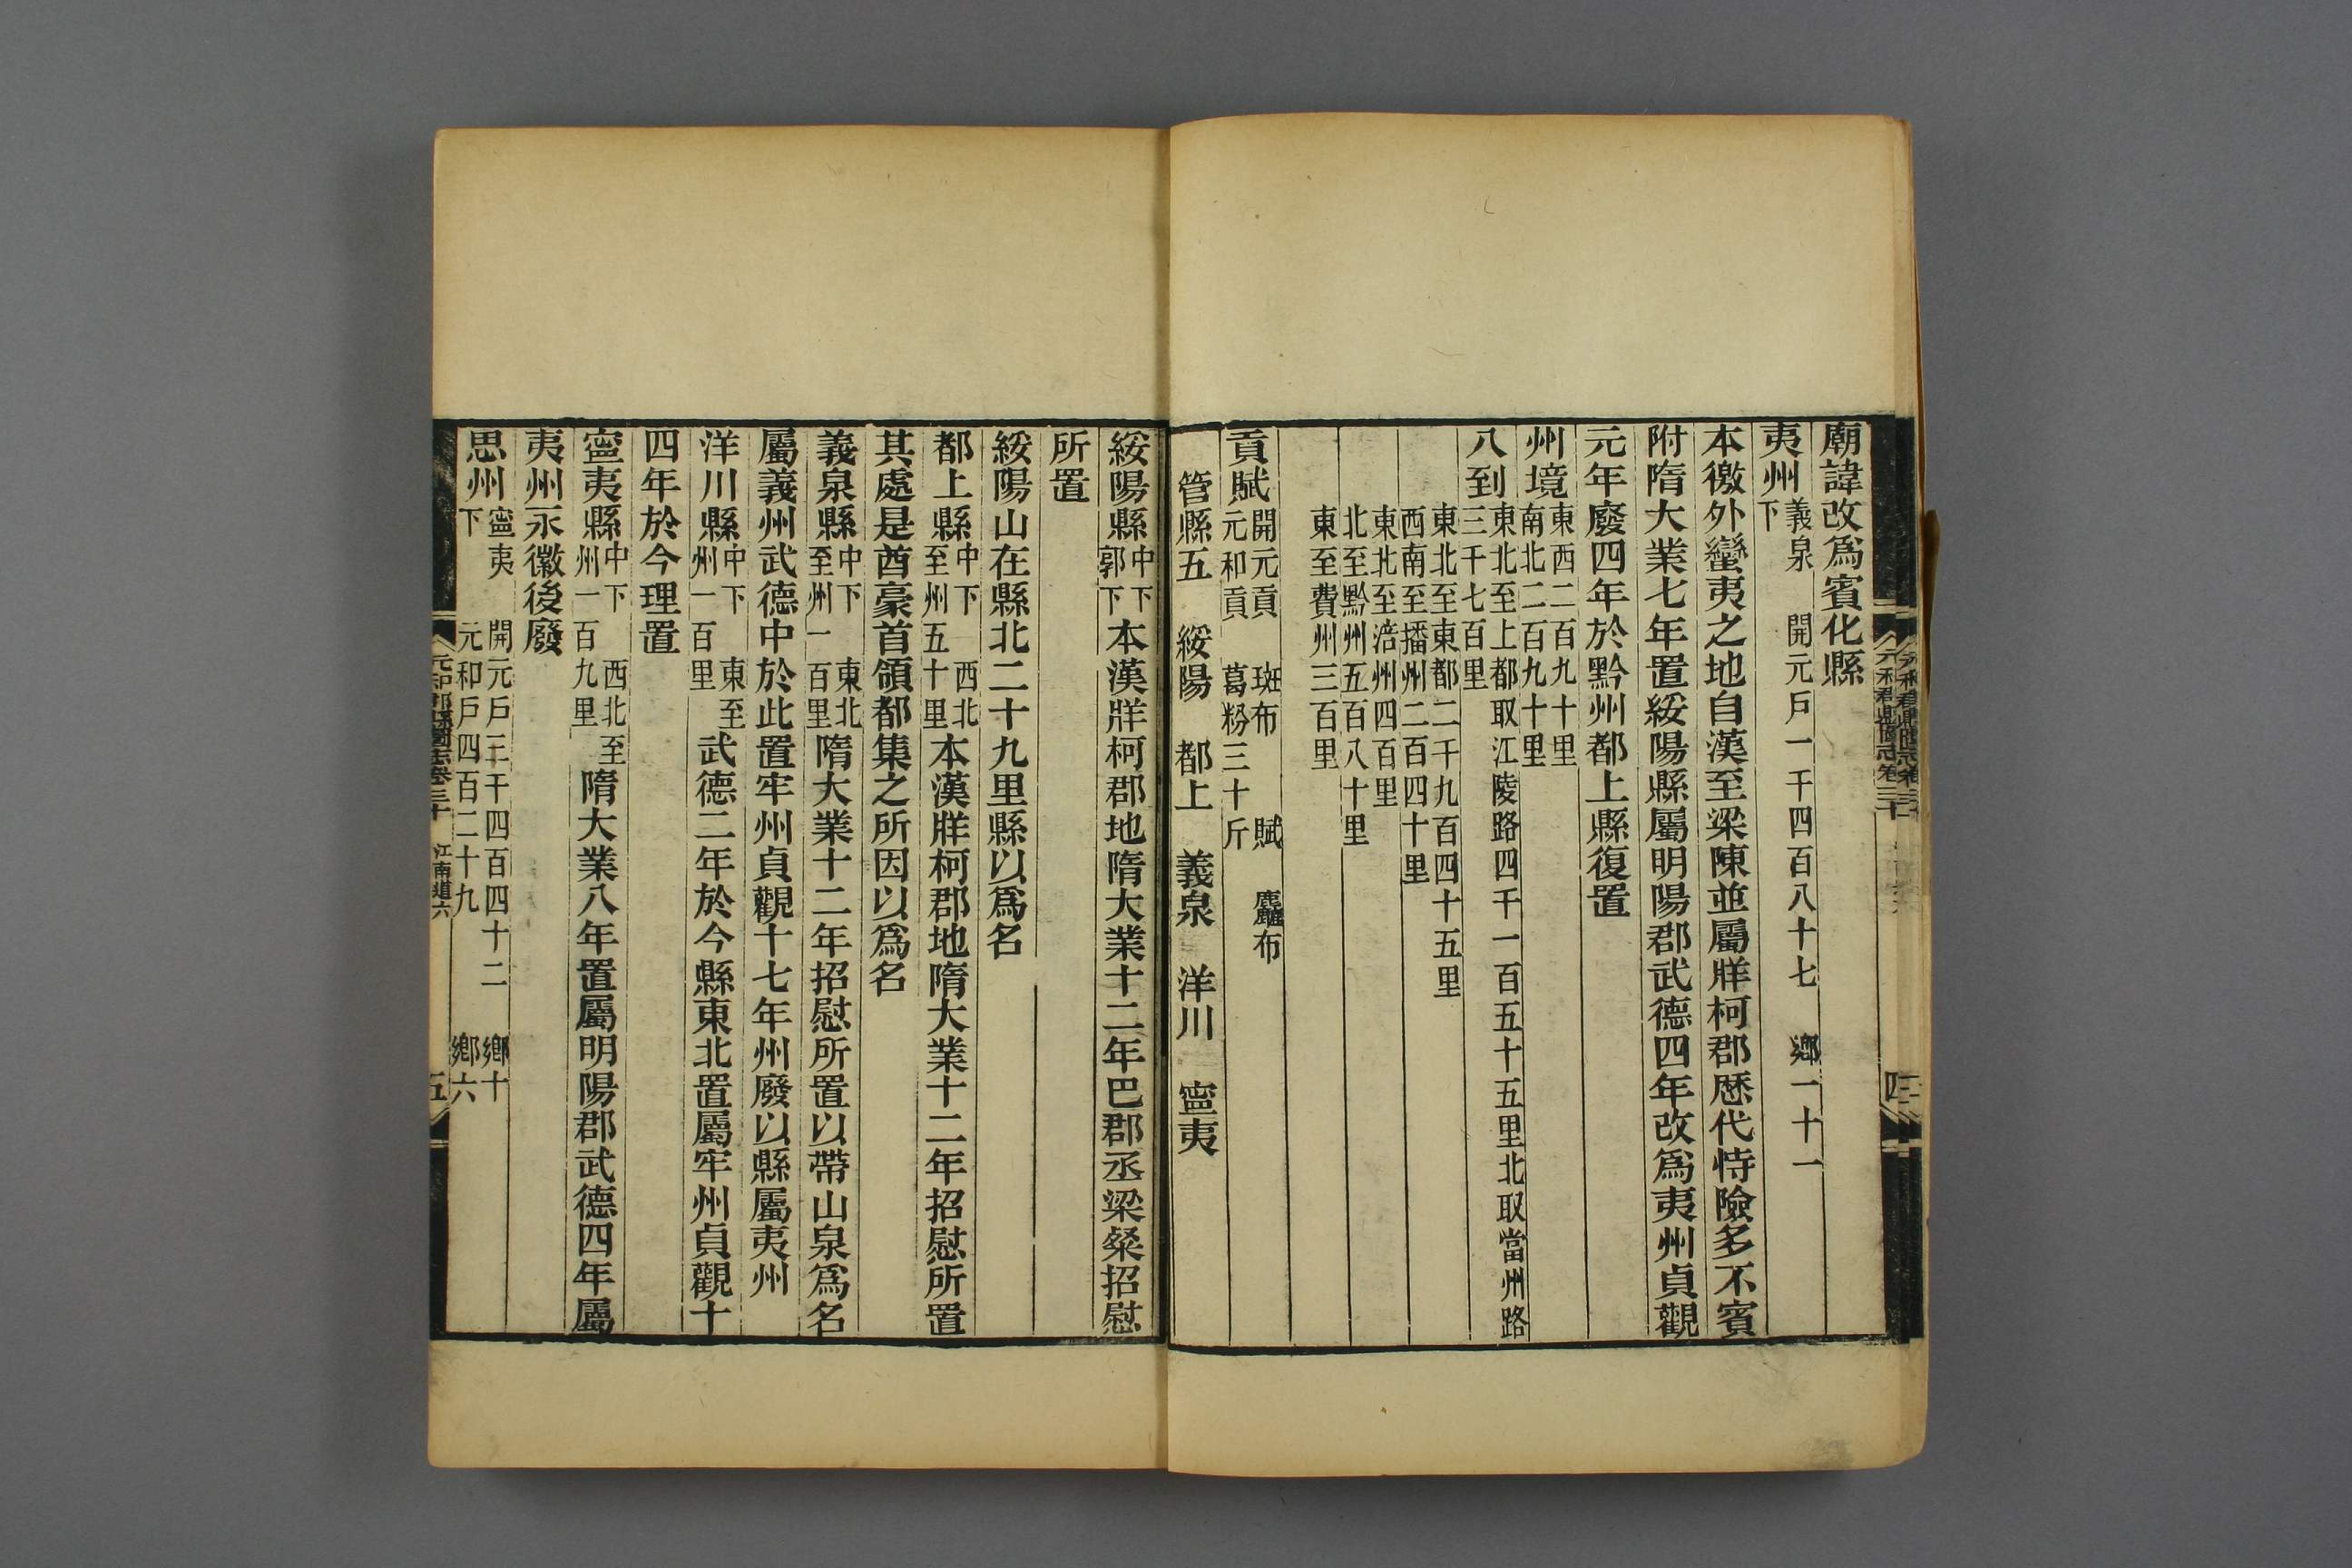 廟諱改爲賓化縣
夷州義泉下　開元戶一千四百八十七　鄉一十一
本徼外蠻夷之地自漢至梁陳並屬牂柯郡歷代恃險多不賓
附隋大業七年置綏陽縣屬明陽郡武德四年改爲夷州貞觀
元年廢四年於黔州都上縣復置
州境東西二百九十里南北二百九十里
八到東北至上都取江陵路四千一百五十五里北取當州路三千七百里
東北至東都二千九百四十五里
西南至播州二百四十里
東北至涪州四百里
北至黔州五百八十里
東至費州三百里
貢賦開元貢　斑布　賦　麤布
元和貢　葛粉三十斤
管縣五　綏陽　都上　義泉　洋川　寧夷
綏陽縣中下郭下本漢牂柯郡地隋大業十二年巴郡丞梁粲招慰
所置
綏陽山在縣北二十九里縣以爲名
都上縣中下　西北至州五十里本漢牂柯郡地隋大業十二年招慰所置
其處是酋豪首領都集之所因以爲名
義泉縣中下　東北至州一百里隋大業十二年招慰所置以帶山泉爲名
屬義州武德中於此置牢州貞觀十七年州廢以縣屬夷州
洋川縣中下　東至州一百里武德二年於今縣東北置屬牢州貞觀十
四年於今理置
寧夷縣中下　西北至州一百九里隋大業八年置屬明陽郡武德四年屬
夷州永徽後廢
思州寧夷下　開元戶三千四百四十二　鄉十
元和戶四百二十九　鄉六
元和郡縣圖志卷三十　江南道六　五